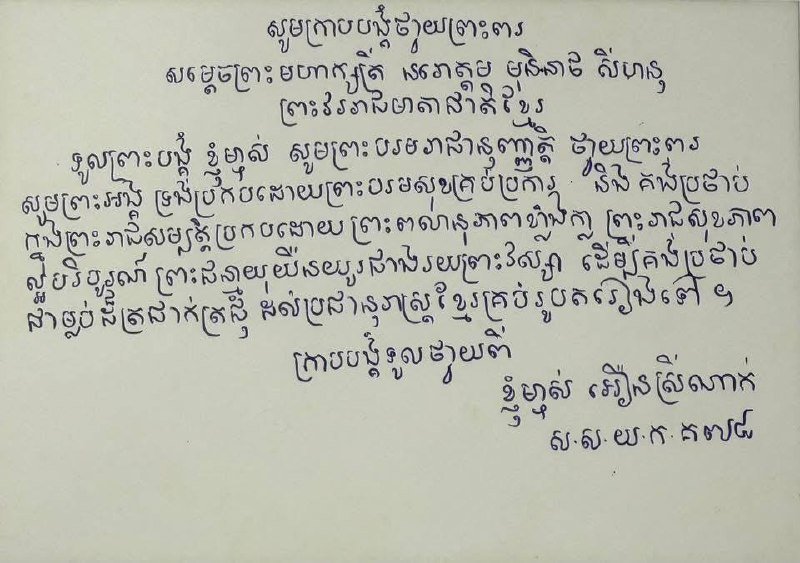 សូមក្រាបបង្គំថ្វាយព្រះពរ
សម្តេចព្រះមហាក្សត្រី នរោត្តម មុនិនាថ សីហនុ
ព្រះវររាជមាតាជាតិខ្មែរ
ទូលព្រះបង្គំ ខ្ញុំម្ចាស់ សូមព្រះបរមរាជានុញ្ញាត្តិ ថ្វាយព្រះពរ
សូមព្រះអង្គ ទ្រង់ប្រកបដោយព្រះបរមសុខគ្រប់ប្រការ និង គង់ប្រថាប់
ក្នុងព្រះរាជសម្បត្តិប្រកបដោយ ព្រះពលានុភាពខ្លាំងក្លា ព្រះរាជសុខភាព
ល្អបរិបូរណ៍ ព្រះជន្មាយុយឺនយូរជាងរយព្រះវស្សា ដើម្បីគង់ប្រថាប់
ជាម្លប់ដ៏ត្រជាក់ត្រជុំ ដល់ប្រជានុរាស្ត្រខ្មែរគ្រប់រូបតរៀងទៅ ។
ក្រាបបង្គំទូលថ្វាយពី
ខ្ញុំម្ចាស់ អឿនស្រីណាក់
ស.ស.យ.ក.